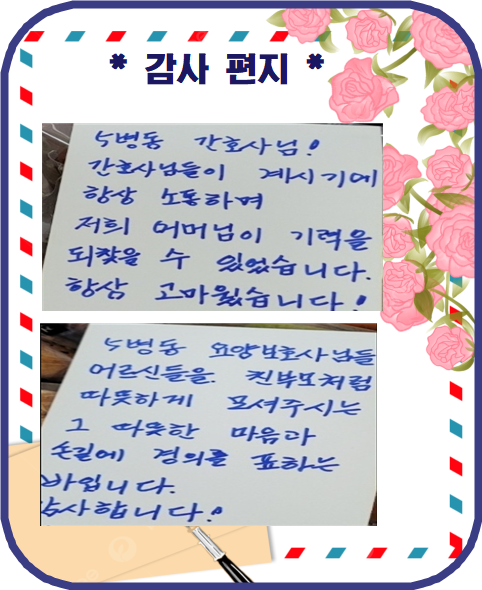 * 감사 편지 *
5병동 간호사님!
간호사님들이 계시기에
항상 소통하며
저희 어머님이 기력을
되찾을 수 있었습니다.
항상 고마웠습니다!
5병동 요양보호사님들
어르신들을. 친부모처럼
따뜻하게 모셔주시는
그 따뜻한 마음과
손길에 경의를 표하는
바입니다.
감사합니다!